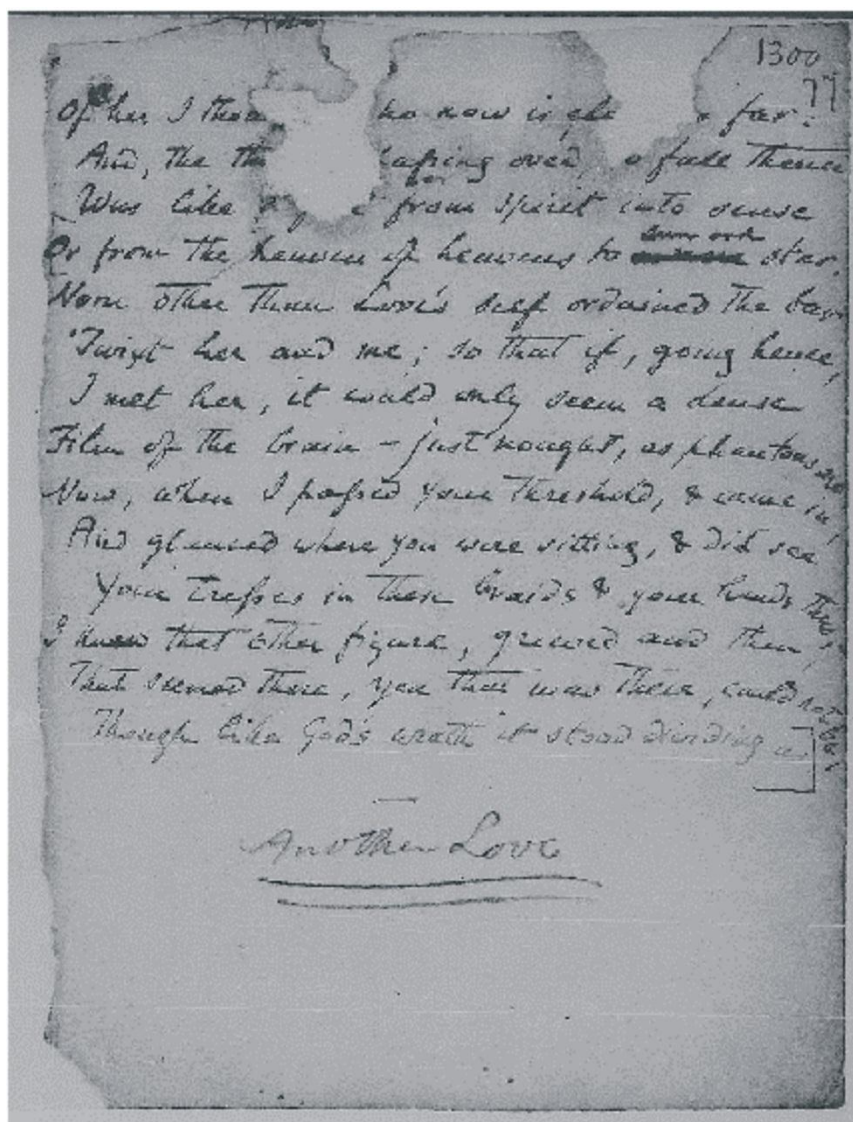 1300
77
Of her I thou ho now is g far:
And, the th lapsing over, o fall thence
Was like from spirit into sense
Or from the heaven of heavens to sun and star.
None other than Love's self ordained the bar
'Twixt her and me; so that if, going hence,
I met her, it could only seem a dense
Film of the brain – just nought, as phantoms are.
Now, when I passed your threshold, & came in,
And glanced where you were sitting, & did see
Your tresses in these braids & your hands thus,
I knew that other figure, grieved and thin,
That seemed there, yea that was there, could not be,
Though like God's wrath it stood dividing us.
Another Love